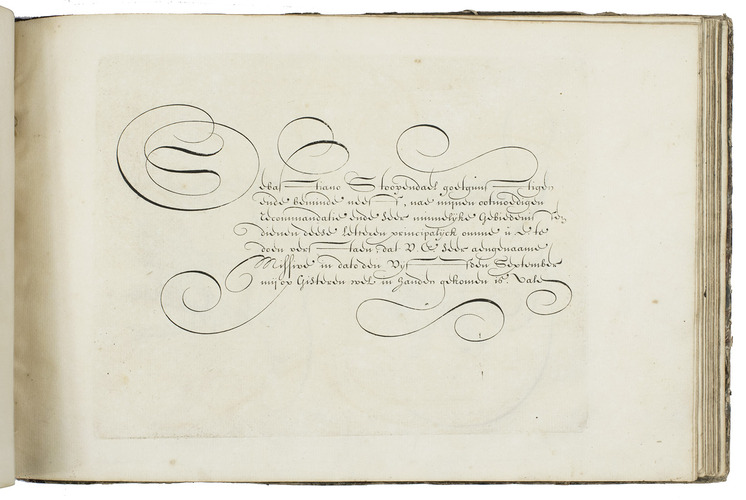 Sebastiano Stoopendael goetgunstigen
ende beminde neef, nae mijnen ootmoedigen
recommandatie ende seer minnelyke Gebiedenis
dienen deese Letteren principalyck omme u E te
doen verstaen, dat V. E. seer aengenaame
Missive in dato den Vyfden September
mij op Gisteren wel in handen gekomen is. Vale